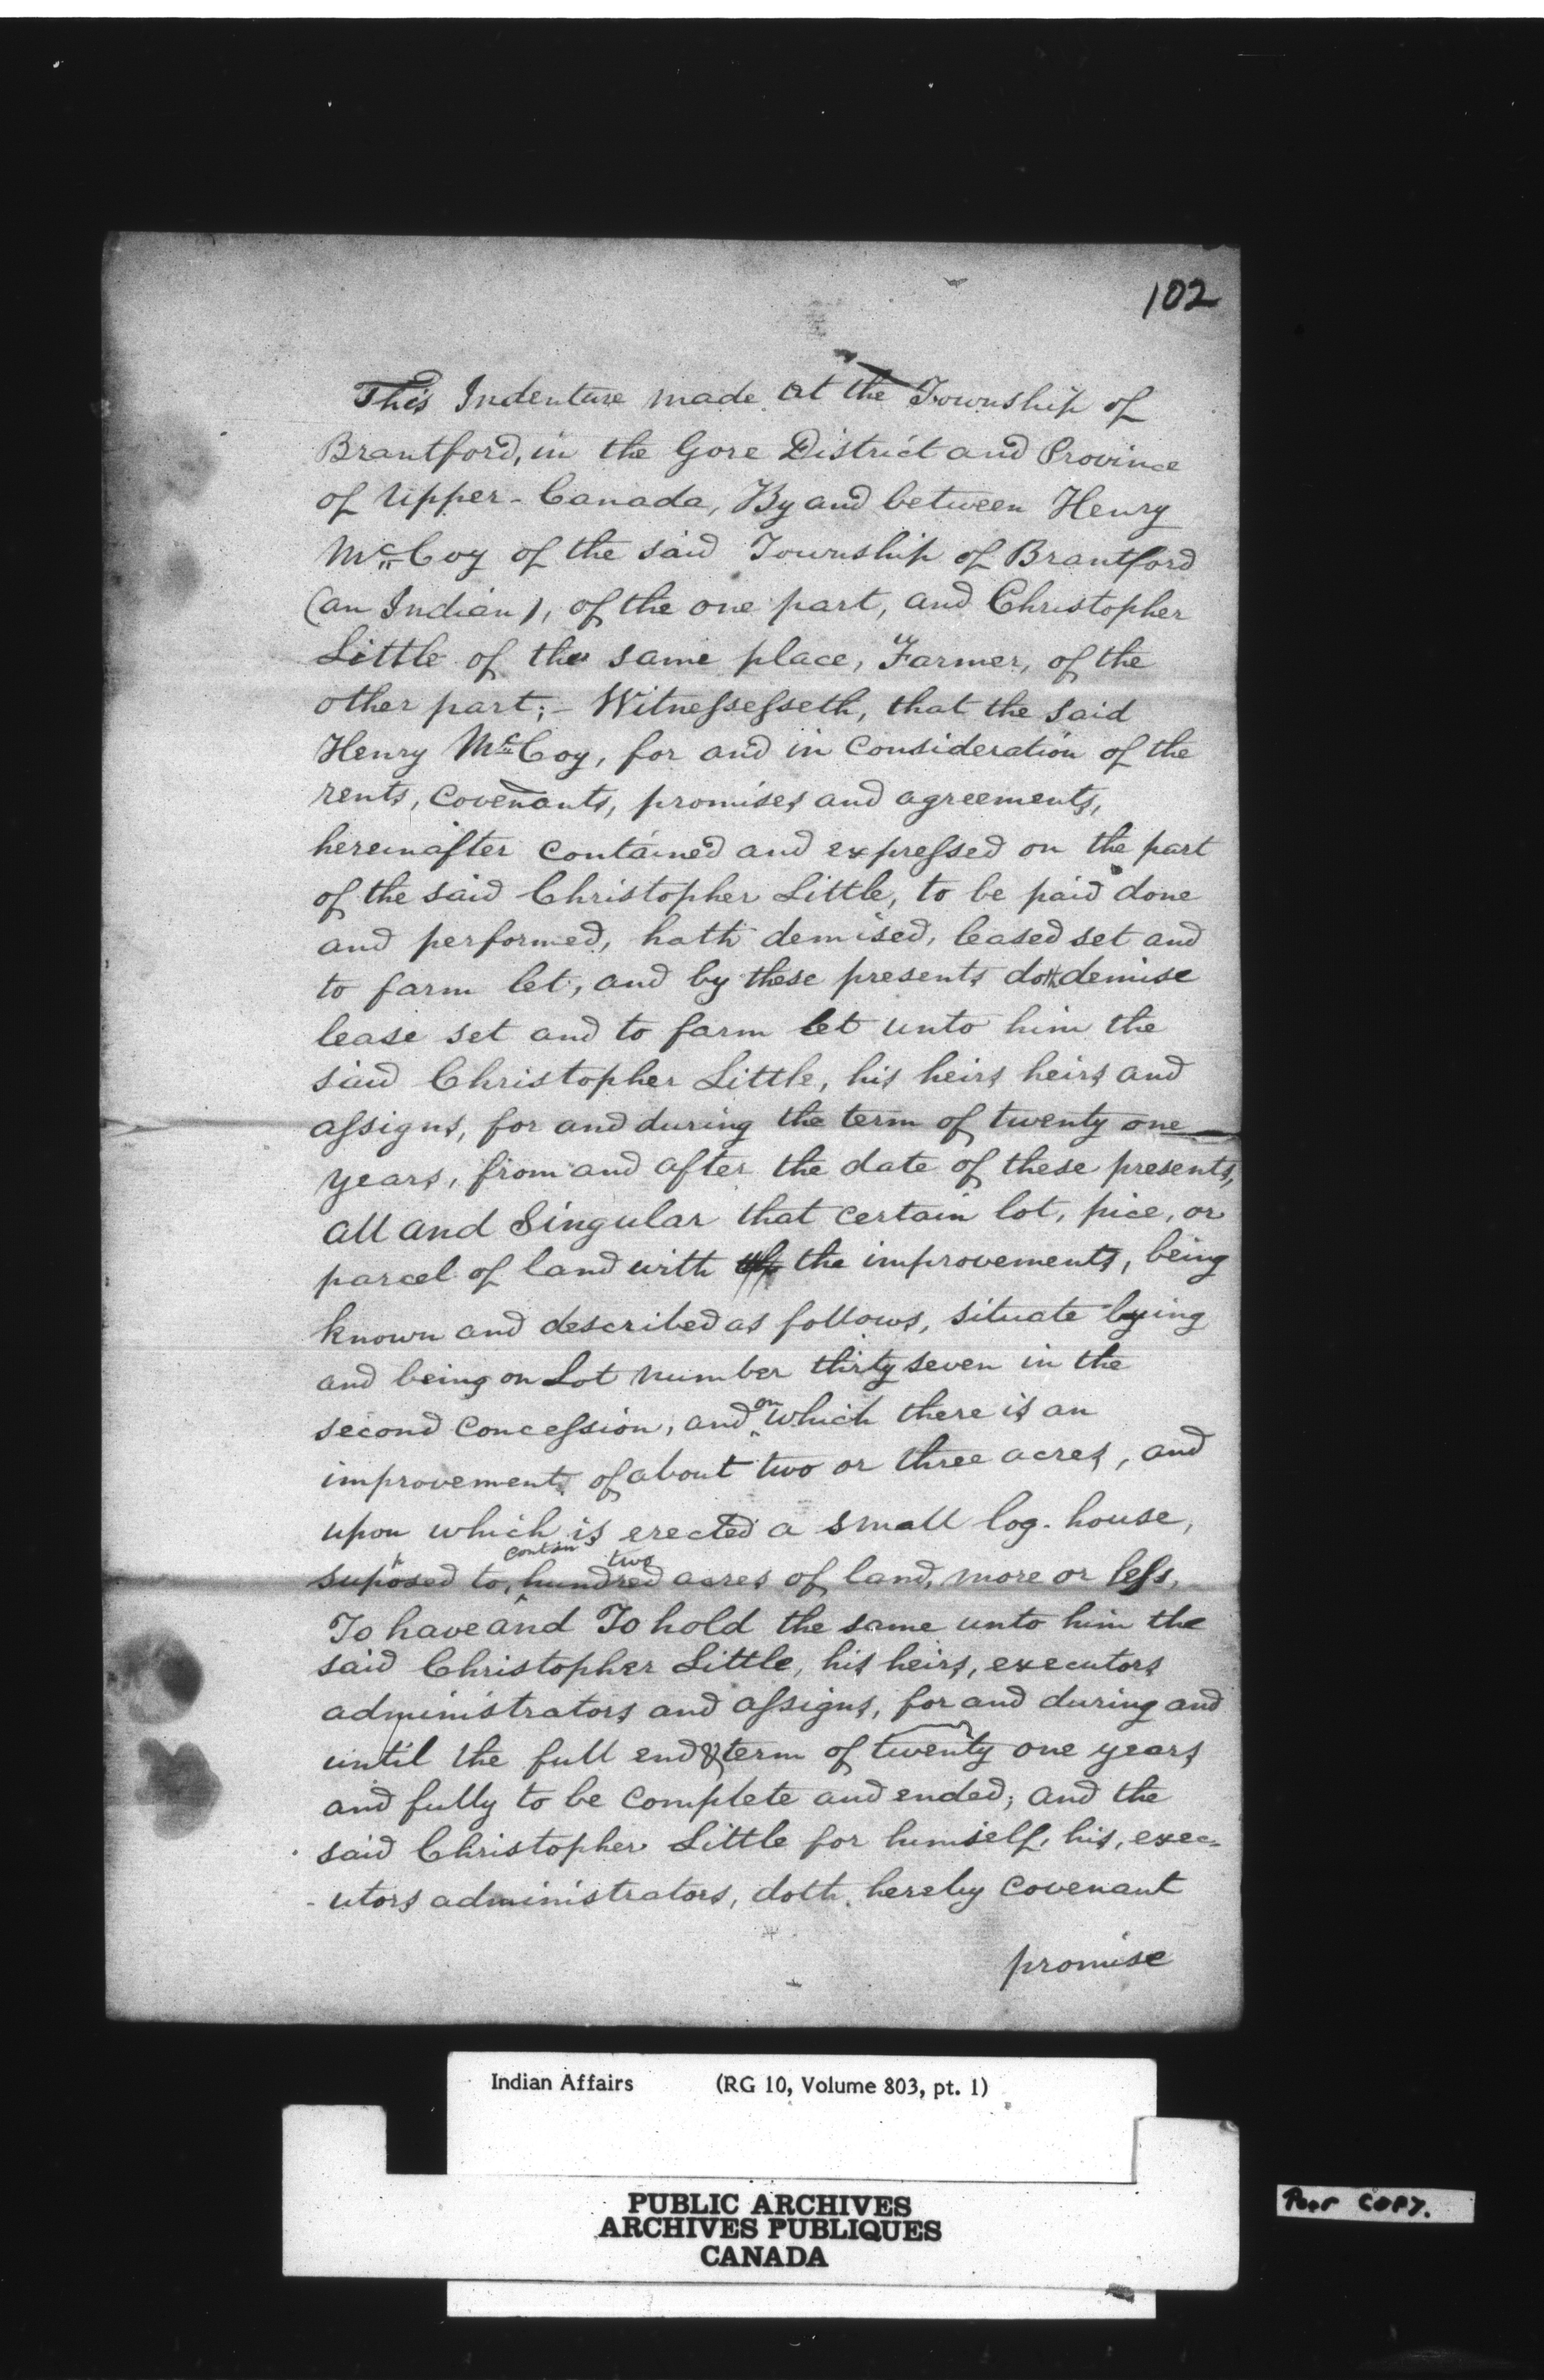 102
This Indenture made at the Township of
Brantford, in the Gore District and Province
of Upper-Canada, By and between Henry
McCoy of the said Township of Brantford
(an Indian), of the one part, and Christopher
Little of the same place, Farmer, of the
other part;- Witnessesseth, that the said
Henry McCoy, for and in consideration of the
rents, covenants, promises and agreements,
hereinafter contained and expressed on the part
of the said Christopher Little, to be paid done
and performed, hath demised, leased set and
to farm let, and by these presents doth demise
lease set and to farm let unto him the
said Christopher Little, his heirs heirs and
assigns, for and during the term of twenty one
years, from and after the date of these presents,
all and Singular that certain lot, pice, or
parcel of land with the improvements, being
known and described as follows, situate lying
and being on Lot number thirty seven in the
second Concession, and on which there is an
improvements of about two or three acres, and
upon which is erected a small log-house,
suposed to contain two hundred acres of land, more or less,
To have and To hold the same unto him the
said Christopher Little, his heirs, executors
administrators and assigns, for and during and
until the full end & term of twenty one years
and fully to be complete and ended; and the
said Christopher Little for himself, his, exec-
-utors administrators, doth hereby covenant
promise
Indian Affairs (RG 10, Volume 803, pt. 1)
PUBLIC ARCHIVES
ARCHIVES PUBLIQUES
CANADA
Poor COPY.